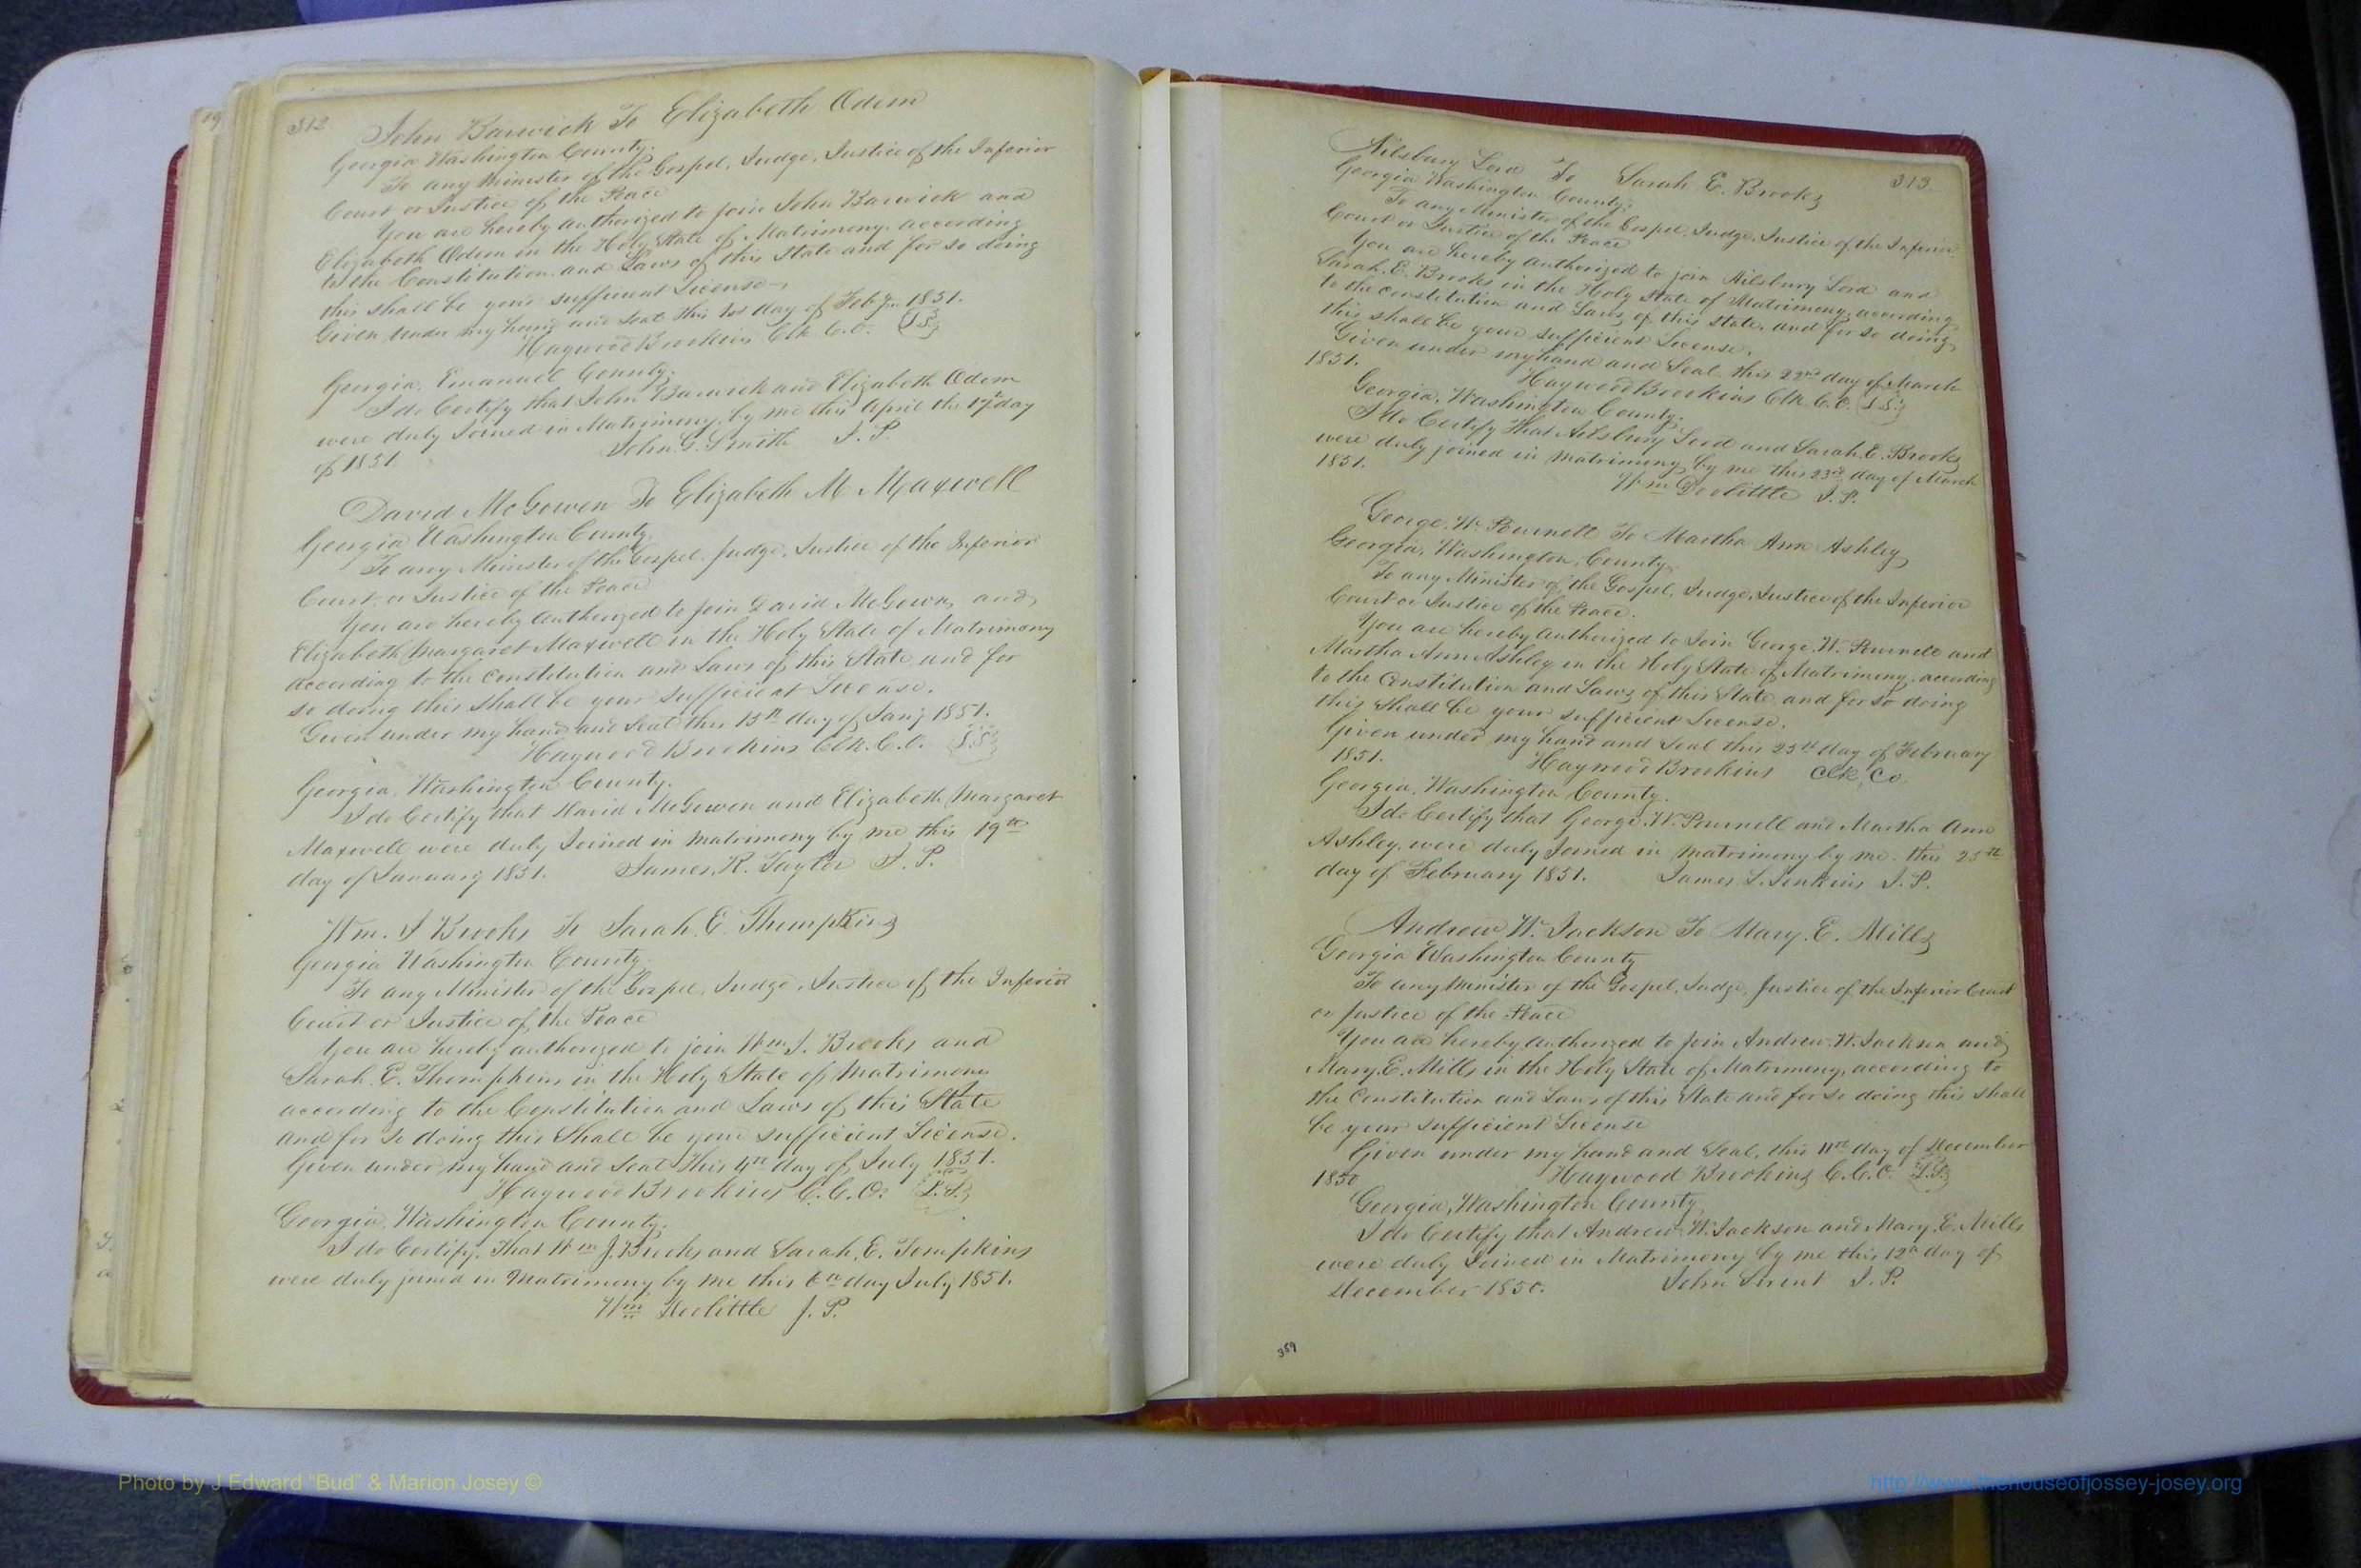 312
John Barwick To Elizabeth Odem
Georgia Washington County.
To any Minister of the Gospel, Judge, Justice of the Inferior
Court or Justice of the Peace
You are hereby Authorized to join John Barwick and
Elizabeth Odem in the Holy State of Matrimony, according
to the Constitution and Laws of this State and for so doing
this shall be your sufficient License
Given under my hand and Seal this 1st day of Feby. 1851.
Haywood Brookins Clk C.O. (L.S)
Georgia, Emanuel County.
I do Certify that John Barwick and Elizabeth Odem
were duly Joined in Matrimony by me this April the 17th day
of 1851. John G. Smith J.P.
David McGowen To Elizabeth M Maxwell
Georgia Washington County.
To any Minister of the Gospel, Judge, Justice of the Inferior
Court, or Justice of the Peace
You are hereby Authorized to join David McGown, and
Elizabeth Margaret Maxwell in the Holy State of Matrimony
according to the Constitution and Laws of this State and for
so doing this shall be your sufficient License.
Given under my hand and Seal this 15th day of Jany 1851.
Haywood Brookins Clk. C.O. (L.S)
Georgia, Washington County.
I do Certify that David McGowen and Elizabeth Margaret
Maxwell were duly Joined in matrimony by me this 19th
day of January 1851. James, R. Taylor J.P.
Wm. J Brooks To Sarah E. Thompkins
Georgia Washington County.
To any Minister of the Gospel, Judge, Justice of the Inferior
Court or Justice of the Peace
You are hereby authorized to join Wm J. Brooks and
Sarah. E. Thompkins in the Holy State of Matrimony
according to the Constitution and Laws of this State
and for so doing this Shall be your sufficient License.
Given under my hand and Seal this 4th day of July 1851.
Haywood Brookins C.C.O. (L.S.)
Georgia, Washington County.
I do Certify, that Wm J. Brooks and Sarah, E. Tompkins
were duly joined in Matrimony by me this 6th day July 1851.
Wm Doolittle J.P.
313
Ailsbury Lord To Sarah E. Brooks
Georgia Washington County:
To any Minister of the Gospel, Judge, Justice of the Inferior
Court or Justice of the Peace
You are hereby Authorized to join Ailsbury Lord and
Sarah. E. Brooks in the Holy State of Matrimony, according
to the constitution and Laws of this State, and for so doing
this shall be your sufficient License.
Given under my hand and Seal, this 22nd day of March
1851. Haywood Brookins Clk C.O. (L.S.)
Georgia, Washington County.
I do Certify that Ailsbury Lord and Sarah. E. Brooks
were duly joined in matrimony by me this 23rd day of March
1851. Wm Doolittle J.P.
George, W. Pournell To Martha Ann Ashley
Georgia, Washington, County.
To any Minister of the Gospel, Judge, Justice of the Inferior
Court or Justice of the Peace.
You are hereby Authorized to Join George. W. Pournell and
Martha Ann Ashley in the Holy State of Matrimony, according
to the Constitution and Laws of this State and for so doing
this shall be your sufficient License.
Given under my hand and Seal this 25th day of February
1851. Haywood Brookins Clk, Co.
Georgia, Washington County.
I do Certify that George, W. Pournell and Martha Ann
Ashley, were duly Joined in matrimony by me this 25th
day of February 1851. James L. Jenkins J.P.
Andrew W. Jackson To Mary. E. Mills
Georgia Washington County
To any Minister of the Gospel, Judge, Justice of the Inferior Court
or Justice of the Peace
You are hereby Authorized to Join Andrew. W. Jackson and
Mary. E. Mills in the Holy State of Matrimony, according to
the Constitution and Laws of this State and for so doing this shall
be your sufficient License
Given under my hand and Seal, this 11th day of December
1850 Haywood Brookins C.C.O. (L.S.)
Georgia, Washington County,
I do Certify that Andrew W. Jackson and Mary. E. Mills
were duly Joined in Matrimony by me this 12th day of
December 1850. John J.P.
359
Photo by J Edward “Bud” & Marion Josey ©
http://www.thehouseofjossey-josey.org